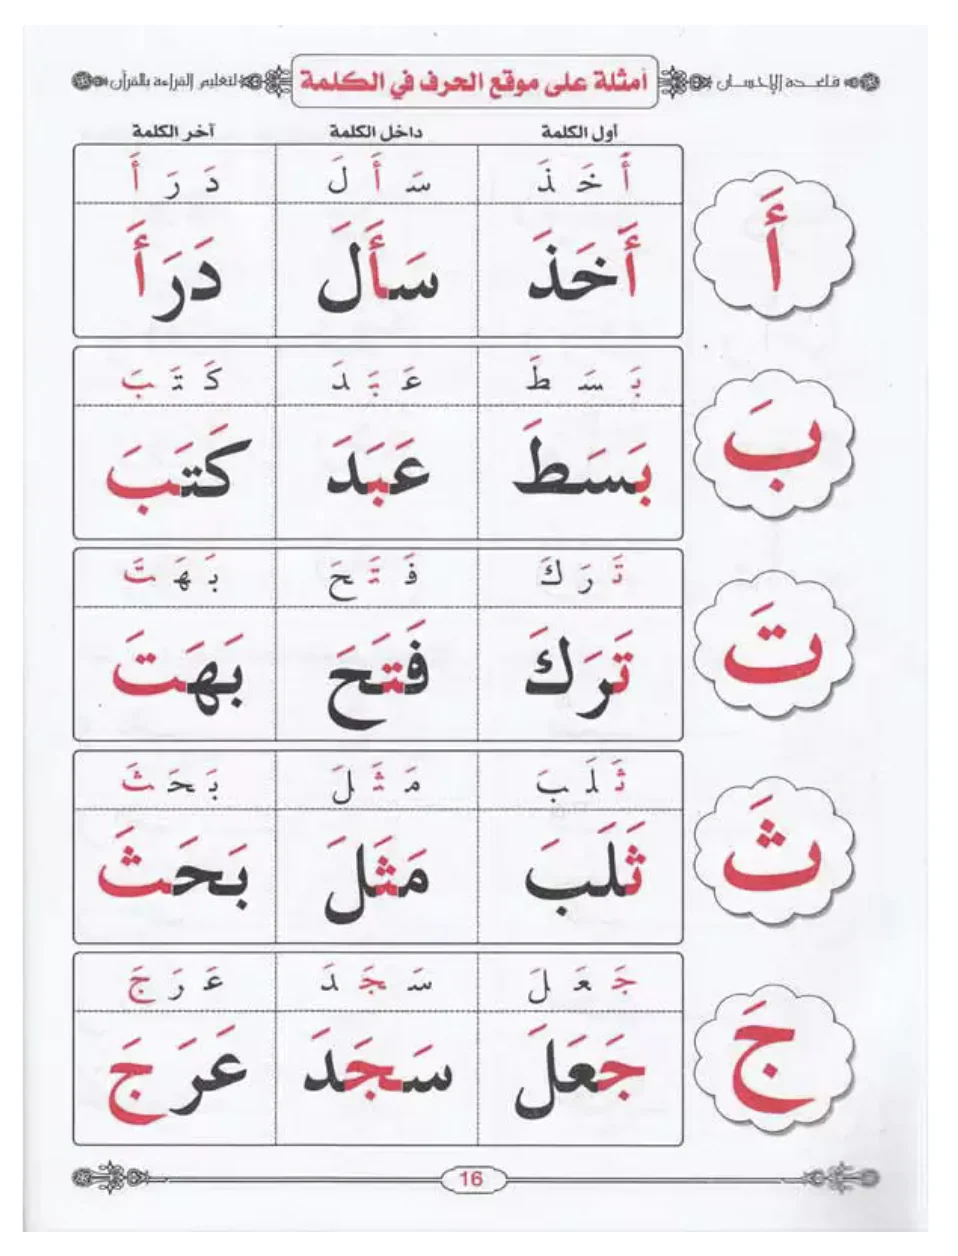 قاعدة الإحسان
أمثلة على موقع الحرف في الكلمة
لتعليم القراءة بالقرآن
أول الكلمة داخل الكلمة آخر الكلمة
أَ خَ ذَ سَ أَ لَ دَ رَ أَ
أَ أَخَذَ سَأَلَ دَرَأَ
بَ سَ طَ عَ بَ دَ كَ تَ بَ
بَ بَسَطَ عَبَدَ كَتَبَ
تَ رَ كَ فَ تَ حَ بَ هَ تَ
تَ تَرَكَ فَتَحَ بَهَتَ
ثَ لَ بَ مَ ثَ لَ بَ حَ ثَ
ثَ ثَلَبَ مَثَلَ بَحَثَ
جَ عَ لَ سَ جَ دَ عَ رَ جَ
جَ جَعَلَ سَجَدَ عَرَجَ
16